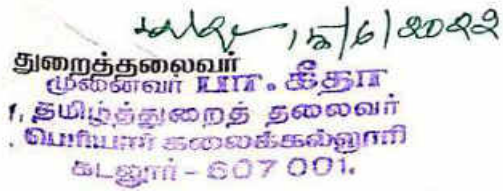 15/6/2022
துறைத்தலைவர்
முனைவர் பா. கீதா
1, தமிழ்த்துறைத் தலைவர்
. பெரியார் கலைக்கல்லூரி
கடலூர் - 607 001.